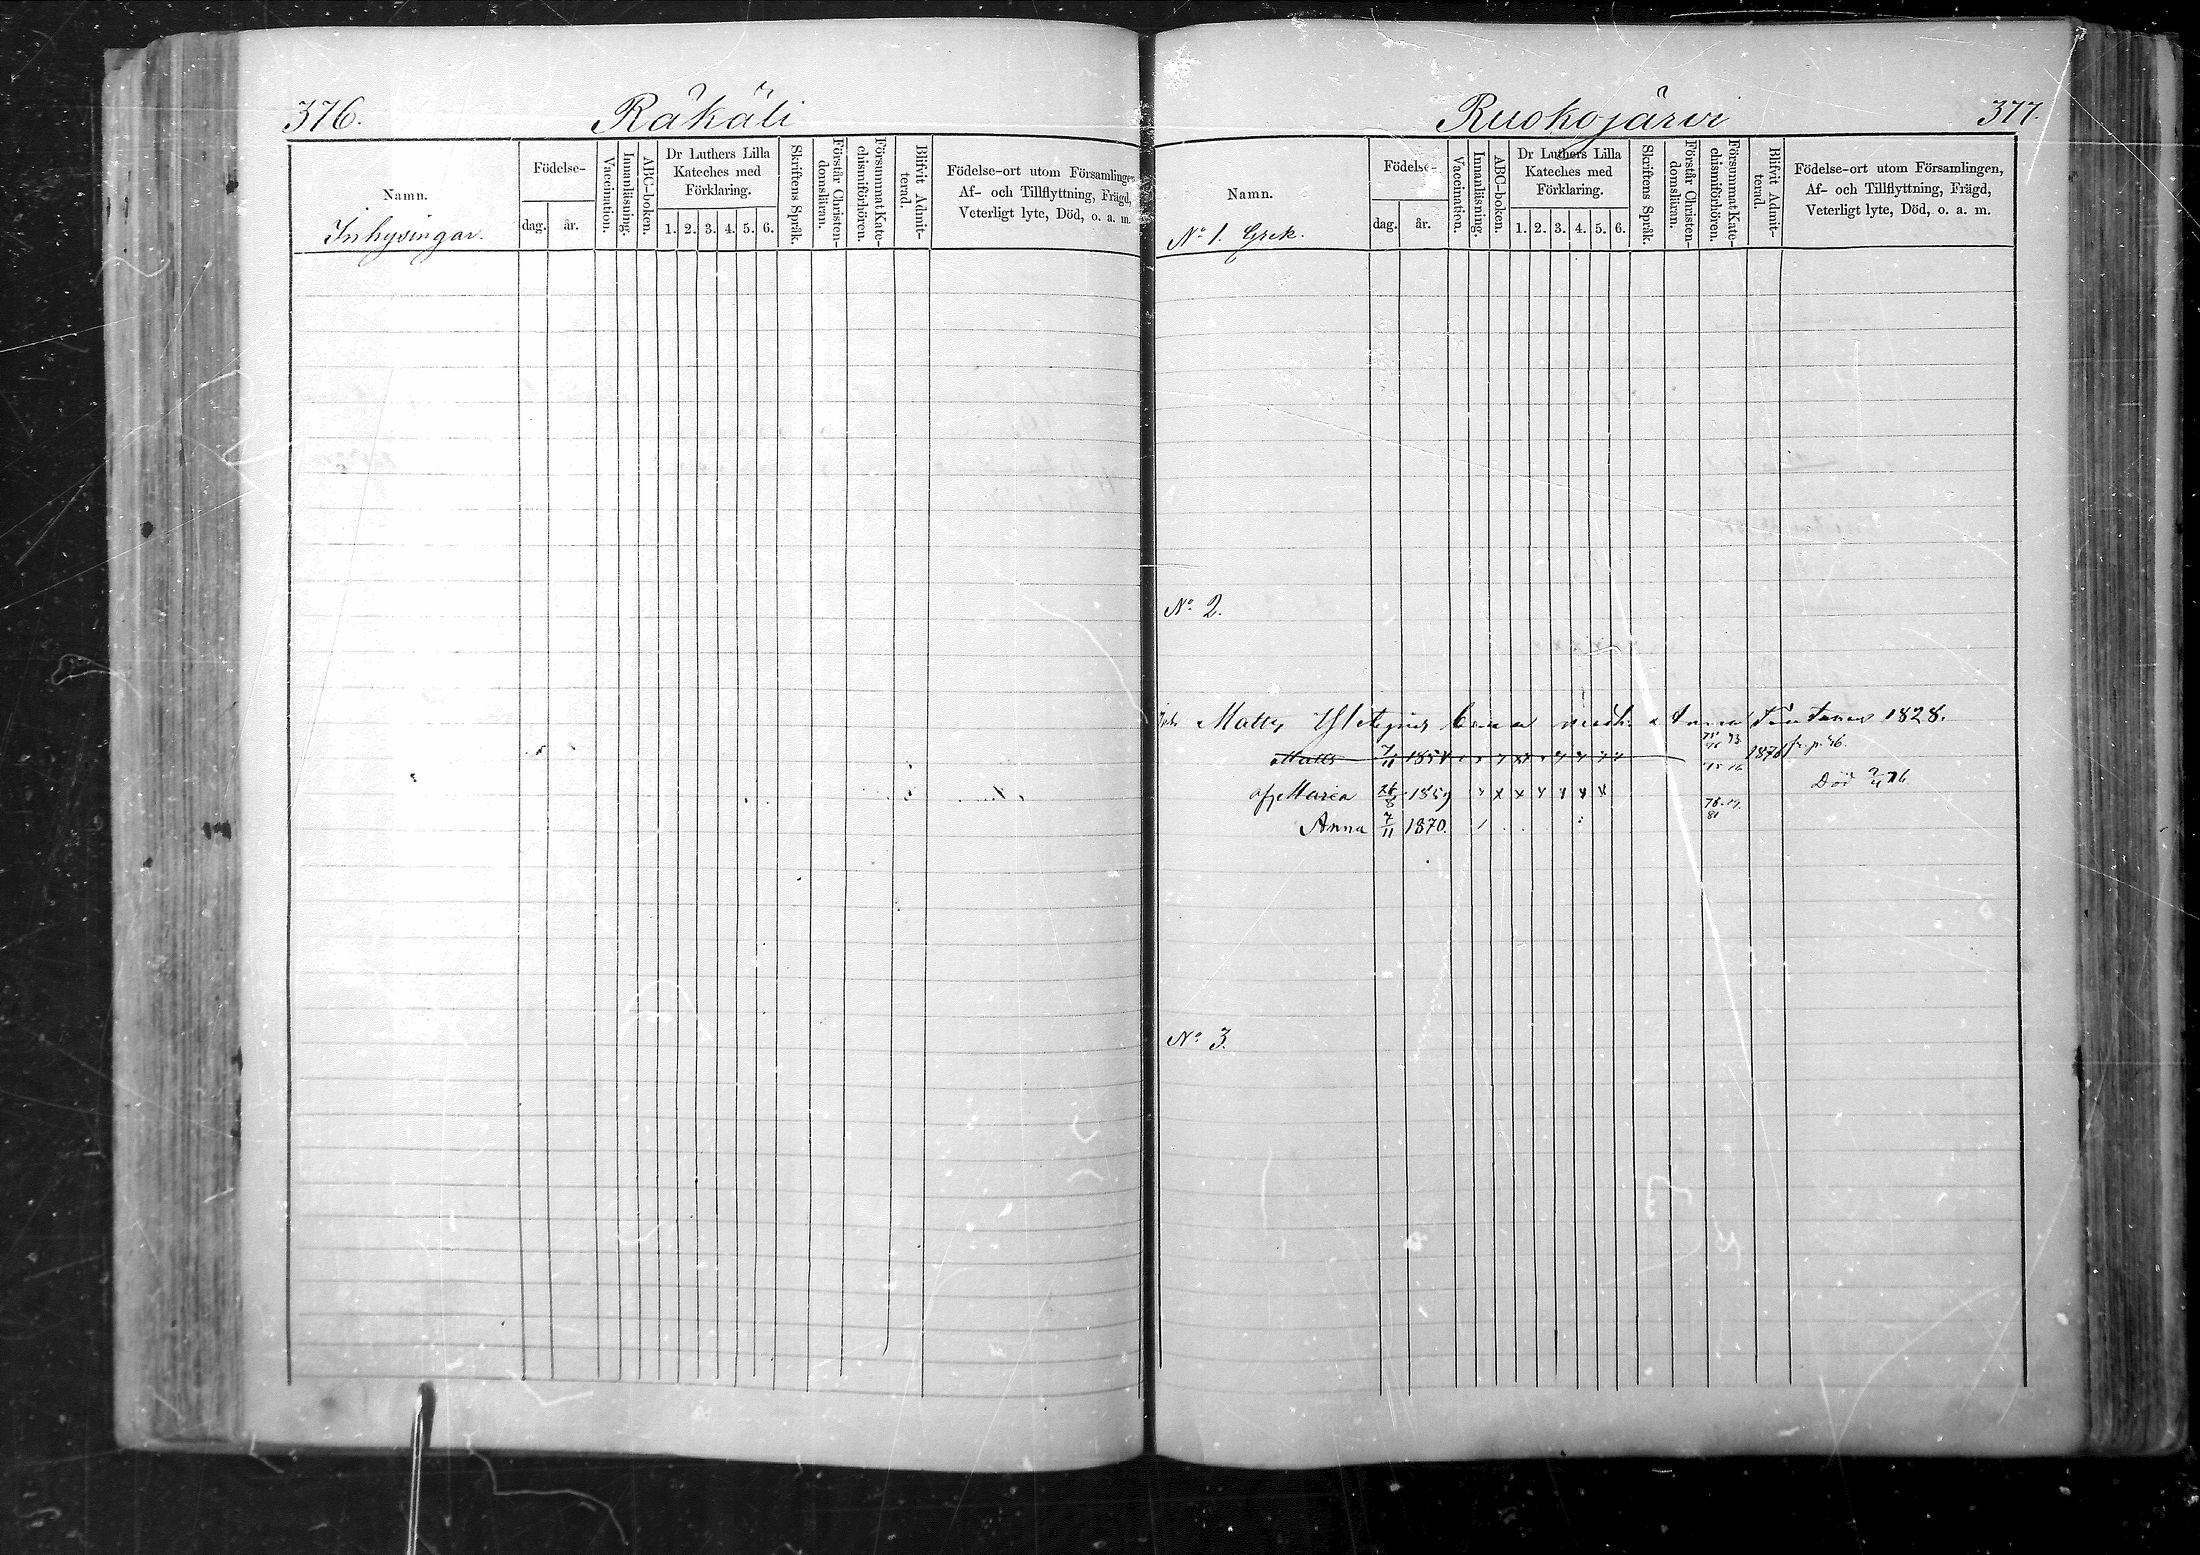 376. Räkäli
Namn.
Inhysingar.
Födelse-
dag. år.
Vaccination.
Innanläsning.
ABC-boken.
Dr Luthers Lilla
Kateches med
Förklaring.
1. 2. 3. 4. 5. 6.
Skriftens Språk.
Förstår Christen-
domsläran.
Försummat Kate-
chismiförhören.
Blifvit Admit-
terad.
Födelse-ort utom Församlingen,
Af- och Tillflyttning, Frägd,
Veterligt lyte, Död, o. a. m.
Ruokojärvi 377.
Namn.
No 1. Grek.
Födelse-
dag. år.
Vaccination.
Innanläsning.
ABC-boken.
Dr Luthers Lilla
Kateches med
Förklaring.
1. 2. 3. 4. 5. 6.
Skriftens Språk.
Förstår Christen-
domsläran.
Försummat Kate-
chismiförhören.
Blifvit Admit-
terad.
Födelse-ort utom Församlingen,
Af- och Tillflyttning, Frägd,
Veterligt lyte, Död, o. a. m.
No 2.
Matts 1828.
Matts 7/11 1858 1876 fr. p. 46.
Maria 26/8 1859 Död 2/4 76
Anna 7/11 1870.
No 3.